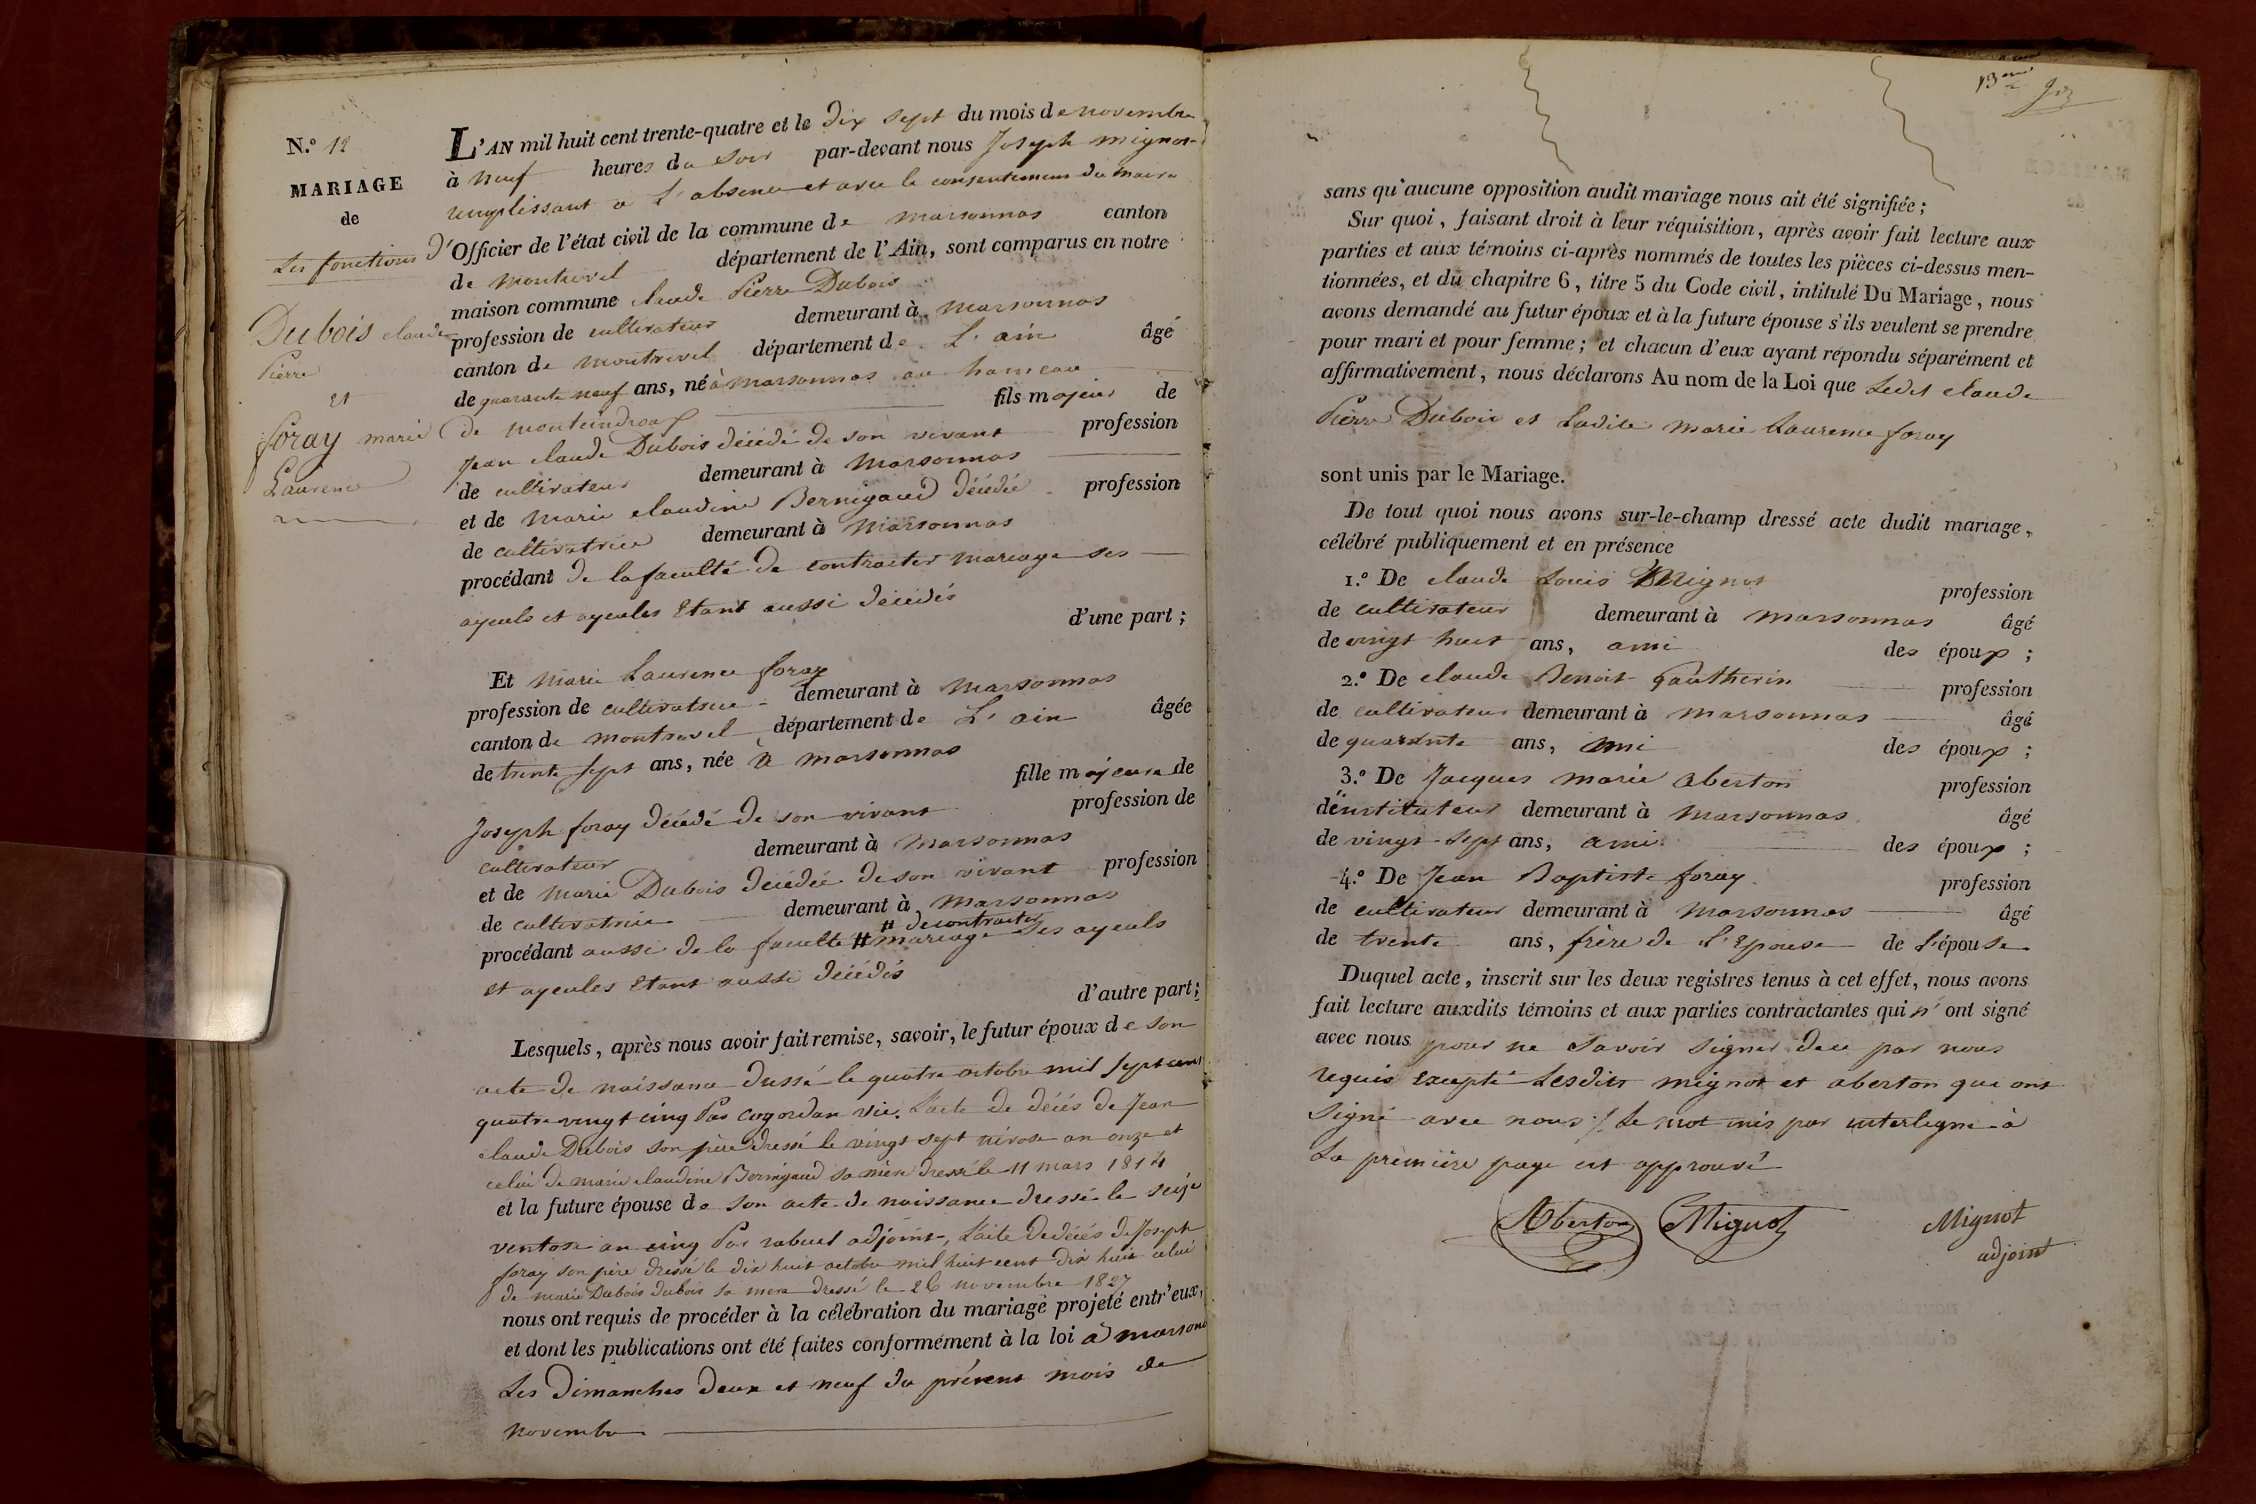 N.º 12
MARIAGE
de
Les fonctions
Dubois claude
Pierre
et
foray marie
Laurence
L'AN mil huit cent trente-quatre et le dix sept du mois de novembre
à neuf heures du soir par-devant nous Joseph mignot
remplissant a L'absence et avec le consentement du maire
d'Officier de l'état civil de la commune de marsonnas canton
de montrevel département de l'Ain, sont comparus en notre
maison commune claude Pierre Dubois
profession de cultivateur demeurant à marsonnas
canton de montrevel département de L'ain âgé
de quarante neuf ans, né à marsonnas au hameau
de fils majeur de
Jean claude Dubois décédé de son vivant profession
de cultivateur demeurant à marsonnas
et de marie claudine Bernigaud décédée profession
de cultivatrice demeurant à marsonnas
procédant de la faculté de contracter mariage ses
ayeuls et ayeules Etant aussi décédés
d'une part ;
Et marie Laurence foray
profession de cultivatrice demeurant à marsonnas
canton de montrevel département de L'ain âgée
de trente sept ans, née à marsonnas
fille majeure de
Joseph foray décédé de son vivant profession de
cultivateur demeurant à marsonnas
et de marie Dubois décédée de son vivant profession
de cultivatrice demeurant à marsonnas
# de contracter
procédant aussi de la faculté # mariage ses ayeuls
et ayeules Etant aussi décédés
d'autre part ;
Lesquels, après nous avoir fait remise, savoir, le futur époux de son
acte de naissance dressé le quatre octobre mil sept cent
quatre vingt cinq Par cogordan vic. L'acte de décés de Jean
claude Dubois son père dressé le vingt sept nivose an onze et
celui de marie claudine Bernigaud sa mère dressé le 11 mars 1814
et la future épouse de son acte de naissance dressé le seize
ventose an cinq Par rabuel adjoint, L'acte de décés de Joseph
foray son père dressé le dix huit octobre mil huit cent dix huit celui
de marie Dubois Dubois sa mère dressé le 26 novembre 1827
nous ont requis de procéder à la célébration du mariage projeté entr'eux,
et dont les publications ont été faites conformément à la loi à marsonnas
Les Dimanches deux et neuf du présent mois de
novembre
13eme
sans qu'aucune opposition audit mariage nous ait été signifiée ;
Sur quoi, faisant droit à leur réquisition, après avoir fait lecture aux
parties et aux témoins ci-après nommés de toutes les pièces ci-dessus men-
tionnées, et du chapitre 6, titre 5 du Code civil, intitulé Du Mariage, nous
avons demandé au futur époux et à la future épouse s'ils veulent se prendre
pour mari et pour femme ; et chacun d'eux ayant répondu séparément et
affirmativement, nous déclarons Au nom de la Loi que Ledit claude
Pierre Dubois et Ladite marie Laurence foray
sont unis par le Mariage.
De tout quoi nous avons sur-le-champ dressé acte dudit mariage,
célébré publiquement et en présence
1.º De claude Louis Mignot profession
de cultivateur demeurant à marsonnas âgé
de vingt huit ans, ami des époux ;
2.º De claude Benoit Gautherin profession
de cultivateur demeurant à marsonnas âgé
de quarante ans, ami des époux ;
3.º De Jacques marie aberton profession
d'instituteur demeurant à marsonnas âgé
de vingt-sept ans, ami des époux ;
4.º De Jean Baptiste foray profession
de cultivateur demeurant à marsonnas âgé
de trente ans, frère de L'Epouse de l'épouse
Duquel acte, inscrit sur les deux registres tenus à cet effet, nous avons
fait lecture auxdits témoins et aux parties contractantes qui n'ont signé
avec nous pour ne savoir signer de ce par nous
requis Excepté Lesdits mignot et aberton qui ont
Signé avec nous ./. Le mot mis par interligne à
La première page est approuvé
Aberton Mignot Mignot
adjoint